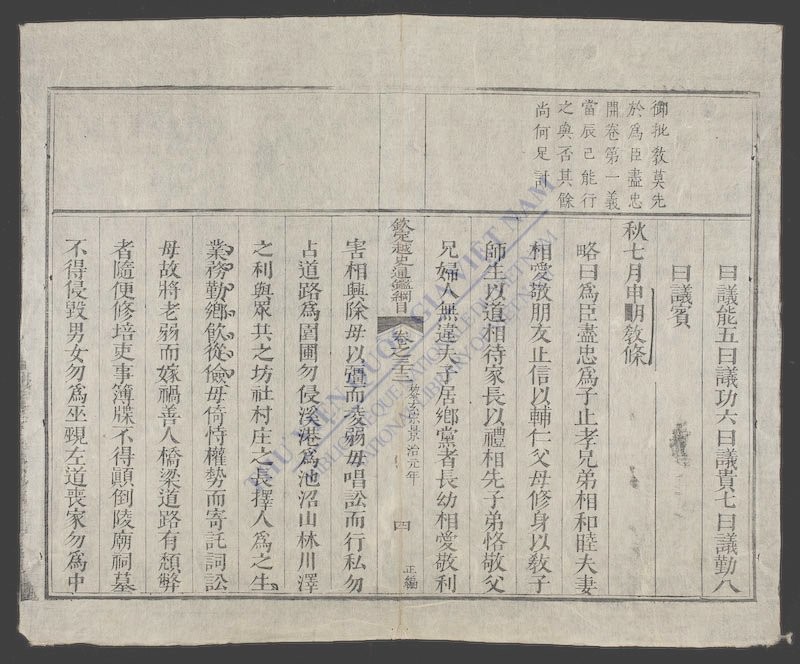 御批教莫先
於爲臣盡忠
開卷第一義
當辰已能行
之與否其餘
尚何足計
曰議能五曰議功六曰議貴七曰議勤八
曰議賓
秋七月申明敎條
略曰爲臣盡忠爲子止孝兄弟相和睦夫妻
相愛敬朋友止信以輔仁父母修身以敎子
師生以道相待家長以禮相先子弟恪敬父
兄婦人無違夫子居鄉黨者長幼相愛敬利
欽定越史通鑑綱目 卷之三十三 黎玄宗景治元年 四 正編
害相興除毋以彊而凌弱毋唱訟而行私勿
占道路爲園圃勿侵溪港爲池沼山林川澤
之利與眾共之坊社村庄之長擇人爲之生
業務勤鄉飲從儉毋倚恃權勢而寄託詞訟
毋故將老弱而嫁禍善人橋梁道路有頹弊
者隨便修培吏事簿牒不得顛倒陵廟祠墓
不得侵毀男女勿爲巫覡左道喪家勿爲中
THƯ VIỆN QUỐC GIA VIỆT NAM
BIBLIOTHEQUE NATIONALE DU VIETNAM
NATIONAL LIBRARY OF VIETNAM